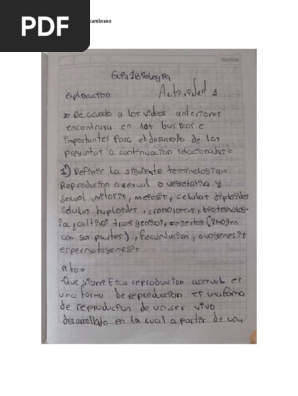 PDF
Guia Biologia
Explicacion Actividad 1
De acuerdo a los videos anteriores
encontrara en las
importantes para el desarrollo de las
preguntas a continuacion relacionadas:
1) Definir la siguiente terminologia:
Reproduccion asexual o vegetativa y
sexual, mitosis, meiosis, celulas diploides
celulas haploides, cromosomas, biotecnolo-
gia, cultivos transgenicos, injertos (imagen
con sus partes), Fecundacion, ovogenesis
espermatogenesis
Rta=
Que significa reproduccion asexual es
una forma de reproduccion es una forma
de reproduccion de un ser vivo
desarrollado en la cual a partir de una